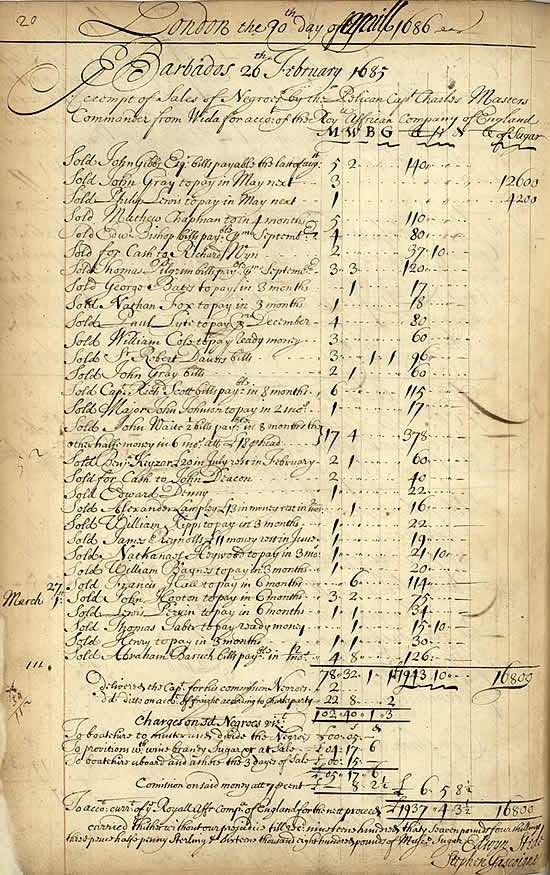 20 London the 90th day of Aprill 1686
Barbados 26th February 1685
accompt of Sales of Negroes by the Pelican Capt Charles Masters
Commander from Wida for acco of the Roy African Company of England
M W B G £ S N of Sugar
Sold John Gibbs Esq bills payable the last of aug 5 2 140
Sold John Gray to pay in May next 3 12600
Sold Philip Lewis to pay in May next 1 4200
Sold Mathew Chapman to in 4 months 5 110
Sold Edw Bishop bills pay Septemb 4 80
Sold for Cash to Richard Wyn 2 37 10
Sold Thomas Pilgrim bills pay Septemb 3 3 120
Sold George Bates to pay in 3 months 1 17
Sold Nathan Fox to pay in 3 months 1 18
Sold Paul Lyte to pay December 4 80
Sold William Cole to pay ready money 3 60
Sold Sr Robert Davers bills 3 1 1 96
Sold John Gray bills 2 1 60
Sold Capt Rich Scott bills pay in 8 months 6 115
Sold Major John Johnson to pay in 2 mos 1 17
Sold John Waite ½ bills pay in 8 months the
other halfe money in 6 mos att £18 head 17 4 378
Sold Benj Keyzar £20 in July rest in February 2 1 60
Sold for Cash to John Deacon 2 40
Sold Edward Denny 1 22
Sold Alexander £13 in money rest in 1 16
Sold William Kipp to pay in 3 months 1 22
Sold James Reynolls £11 money rest in June 1 19
Sold Nathanael Heywood to pay in 3 mo 1 21 10
Sold William Baynes to pay in 3 months 1 20
27 Sold Francis Hall to pay in 6 months 6 114
March 1 Sold John Hooton to pay in 6 months 3 2 75
Sold Lewis to pay in 6 months 1 1 34
Sold Thomas to pay ready money 1 15 10
Sold Henry to pay in 3 months 1 1 30
Sold Abraham Baruch bills pay in mos 4 8 126
78 32 1 1 1943 10 16800
Delivered the Capt for his commission Negroes 2
ditto on acco of freight according to Charte party 22 8 2
102 40 1 3
Charges on sd Negroes viz
To boat hire to muster and divide the Negroes £00 05
To provitions wth wine brandy Sugar at Sale £04 17 6
To boat hire aboard and ashore the 3 days of Sale £00 15
£05 17 6
Comition on said money att 7 p cent 8 2½ £6 5 8½
To acco curr of y Royall Afr Comp of England for the nett proceed £1937 4 3½ 16800
carried thither without our prejudice till nineteen hundred thirty seaven pounds four shillings
three pence halfe penny Sterling & sixteen thousand eight hundred pounds of Musc Sugar Edwyn Stede
Stephen Gascoigne